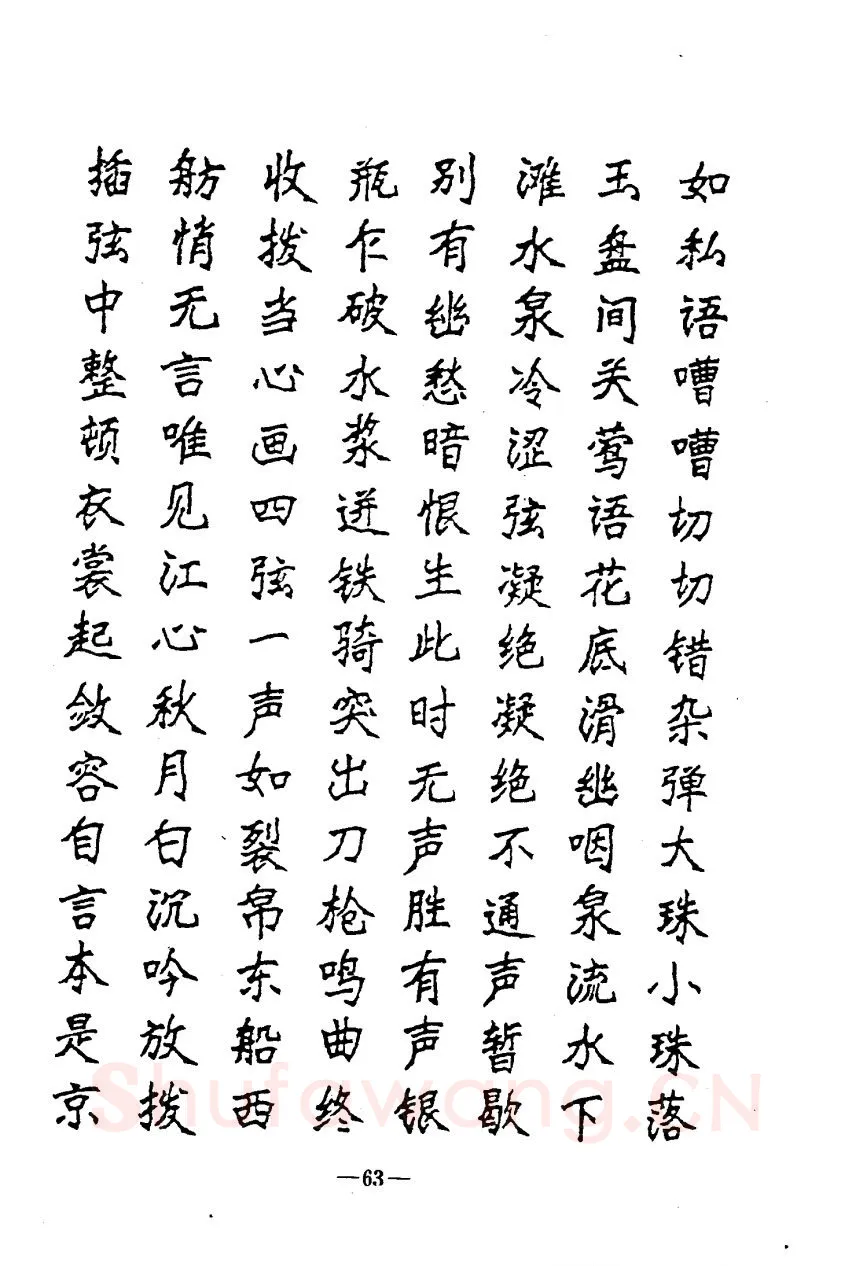 如私语嘈嘈切切错杂弹大珠小珠落
玉盘间关莺语花底滑幽咽泉流水下
滩水泉冷涩弦凝绝凝绝不通声暂歇
别有幽愁暗恨生此时无声胜有声银
瓶乍破水浆迸铁骑突出刀枪鸣曲终
收拨当心画四弦一声如裂帛东船西
舫悄无言唯见江心秋月白沉吟放拨
插弦中整顿衣裳起敛容自言本是京
Shufawang.CN
—63—